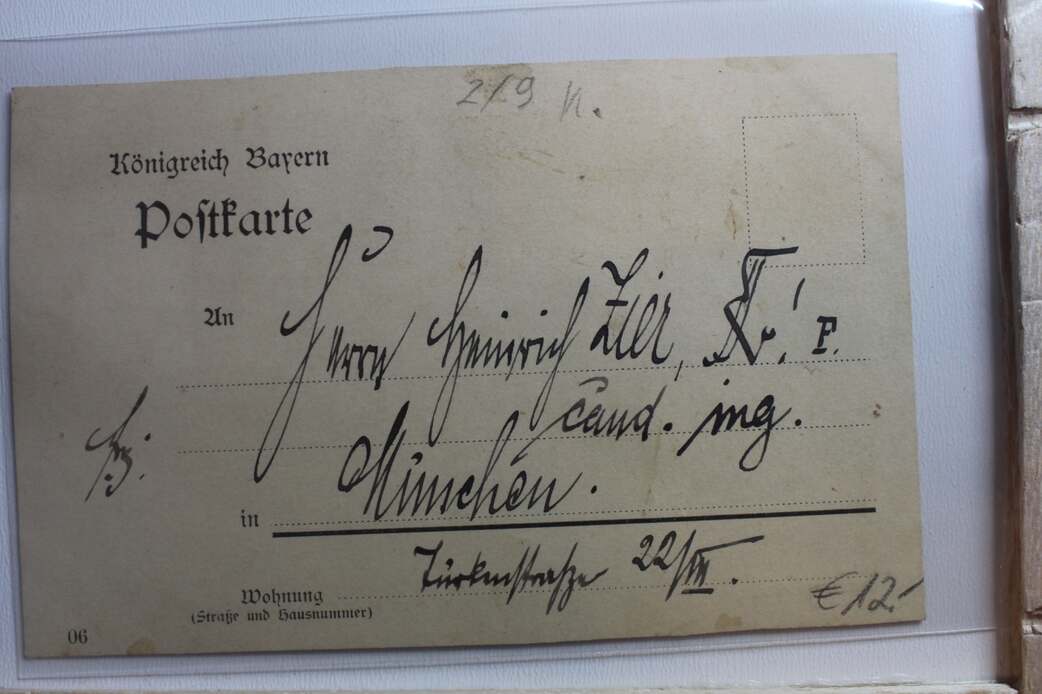 2/9 K.
Königreich Bayern
Postkarte
An
Herrn Heinrich Zier, F.
cand. ing.
in München.
Türkenstraße 22/III.
Wohnung
(Straße und Hausnummer)
06
€ 12.-